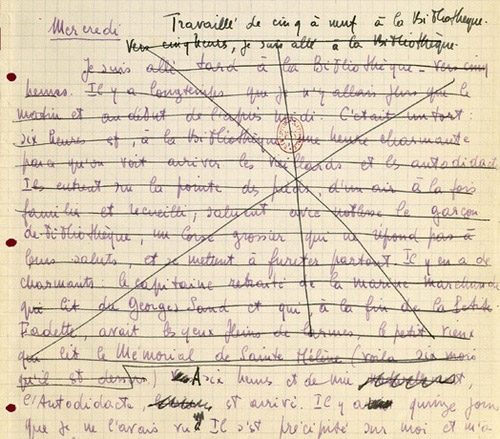 Mercredi Travaillé de cinq à neuf à la Bibliothèque.
Vers cinq heures, je suis allé à la Bibliothèque.
Je suis allé tard à la Bibliothèque vers cinq
heures. Il y a longtemps que je n'y allais plus que le
matin et au début de l'après midi. C'était un tort :
six heures est, à la Bibliothèque une heure charmante
parce qu'on voit arriver les vieillards et les autodidac
Ils entrent sur la pointe des pieds, d'un air à la fois
familier et recueilli, saluent avec noblesse le garçon
de Bibliothèque, un Corse grossier qui ne répond pas à
leurs saluts, et se mettent à fureter partout. Il y en a de
charmants : le capitaine retraité de la marine marchande
qui lit du Georges Sand et qui, à la fin de la Petite
Fadette, avait les yeux pleins de larmes. le petit vieux
qui lit le Mémorial de Sainte Hélène (voilà six mois
qu'il est dessus) A six heures et demie
l'Autodidacte, est arrivé. Il y a quinze jours
que je ne l'avais vu. Il s'est précipité sur moi et m'a